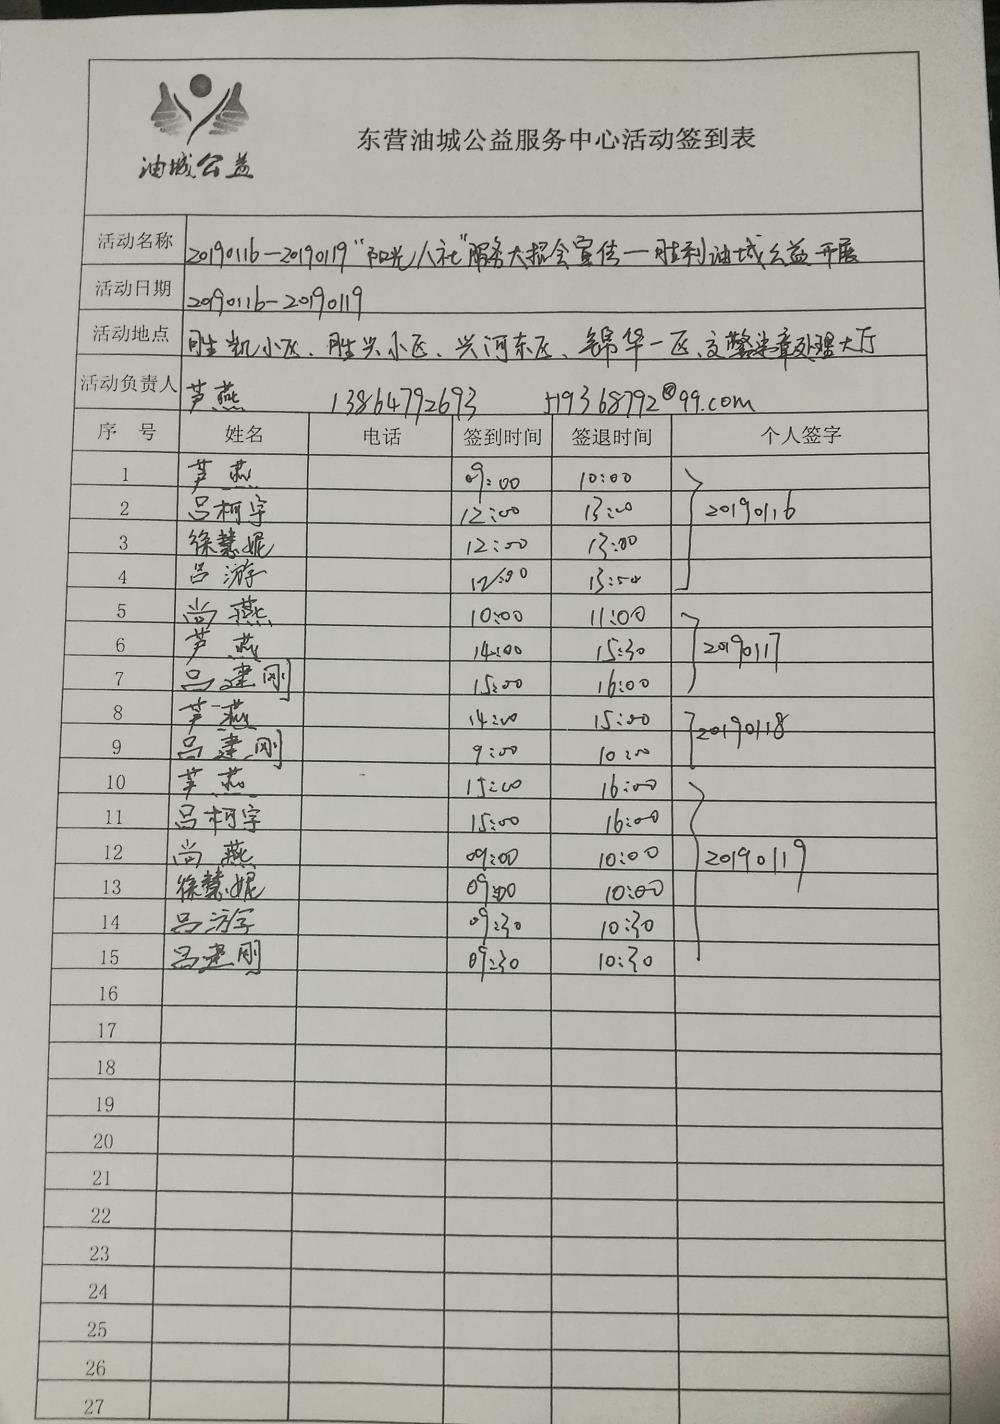 油城公益
东营油城公益服务中心活动签到表
活动名称 20190116—20190119"阳光人社"服务大提会宣传—胜利油城公益开展
活动日期 20190116-20190119
活动地点 胜凯小区、胜兴小区、兴河东区、锦华一区、交警违章处理大厅
活动负责人 芦燕 13864792693 519368792@99.com
序 号 姓名 电话 签到时间 签退时间 个人签字
1 芦燕 09:00 10:00
2 吕柯宇 12:00 13:00 20190116
3 徐慧妮 12:00 13:00
4 吕游宇 12:00 13:50
5 尚燕 10:00 11:00
6 芦燕 14:00 15:30 20190117
7 吕建刚 15:00 16:00
8 芦燕 14:00 15:00 20190118
9 吕建刚 9:00 10:00
10 芦燕 15:00 16:00
11 吕柯宇 15:00 16:00
12 尚燕 09:00 10:00 20190119
13 徐慧妮 09:00 10:00
14 吕游宇 09:30 10:30
15 吕建刚 09:30 10:30
16
17
18
19
20
21
22
23
24
25
26
27